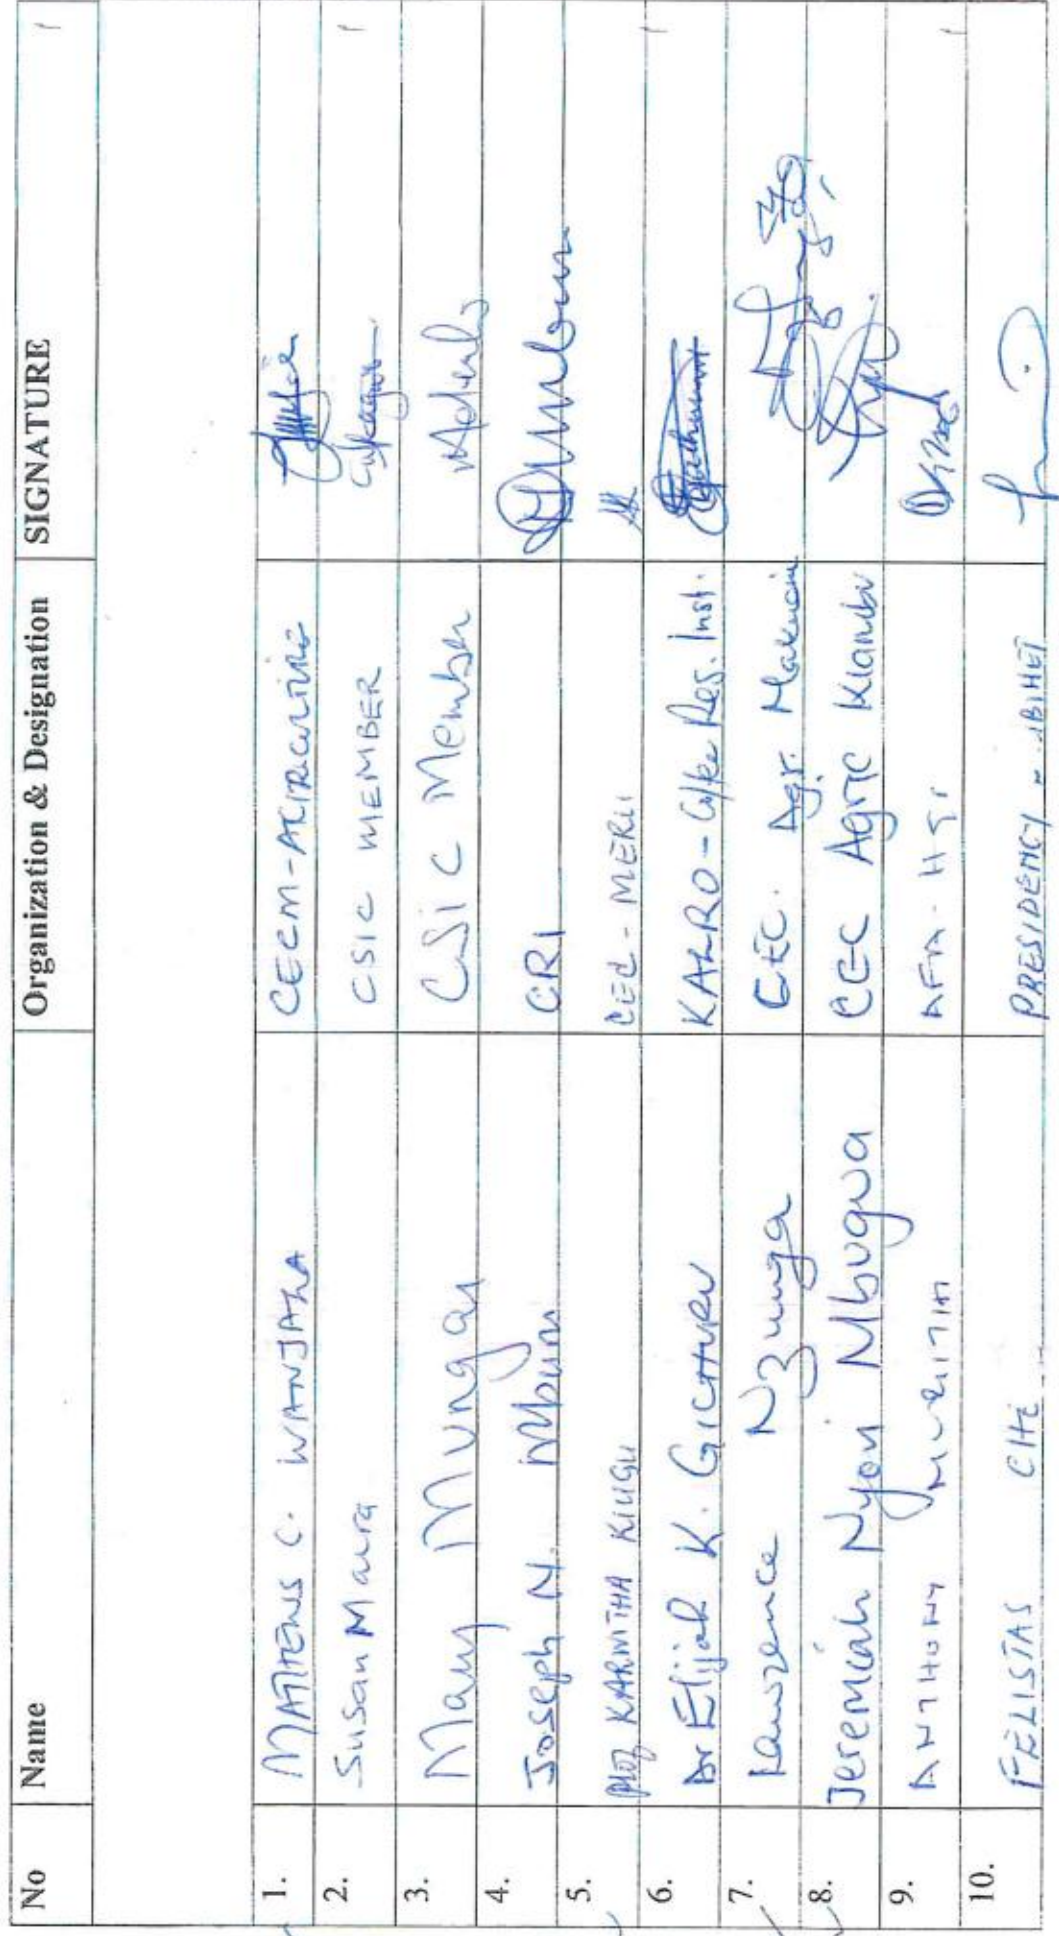 No Name Organization & Designation SIGNATURE
1. C. WANJALA CECM-AGRICULTURE
2. Susan Maura CSIC MEMBER
3. Mary Mungai CSIC Member
4. Joseph N. CRI
5. KARWITHA KIUGU CEC-MERU
6. Dr Elijah K. GICHURU KALRO-Coffee Res. Inst.
7. Lawrence Nzunga CEC. Agr. Makueni
8. Jeremiah Nyori Mbugwa CEC Agric Kiambu
9. ANTHONY MURIITHI AFA-
10. FELISTAS CHE PRESIDENCY